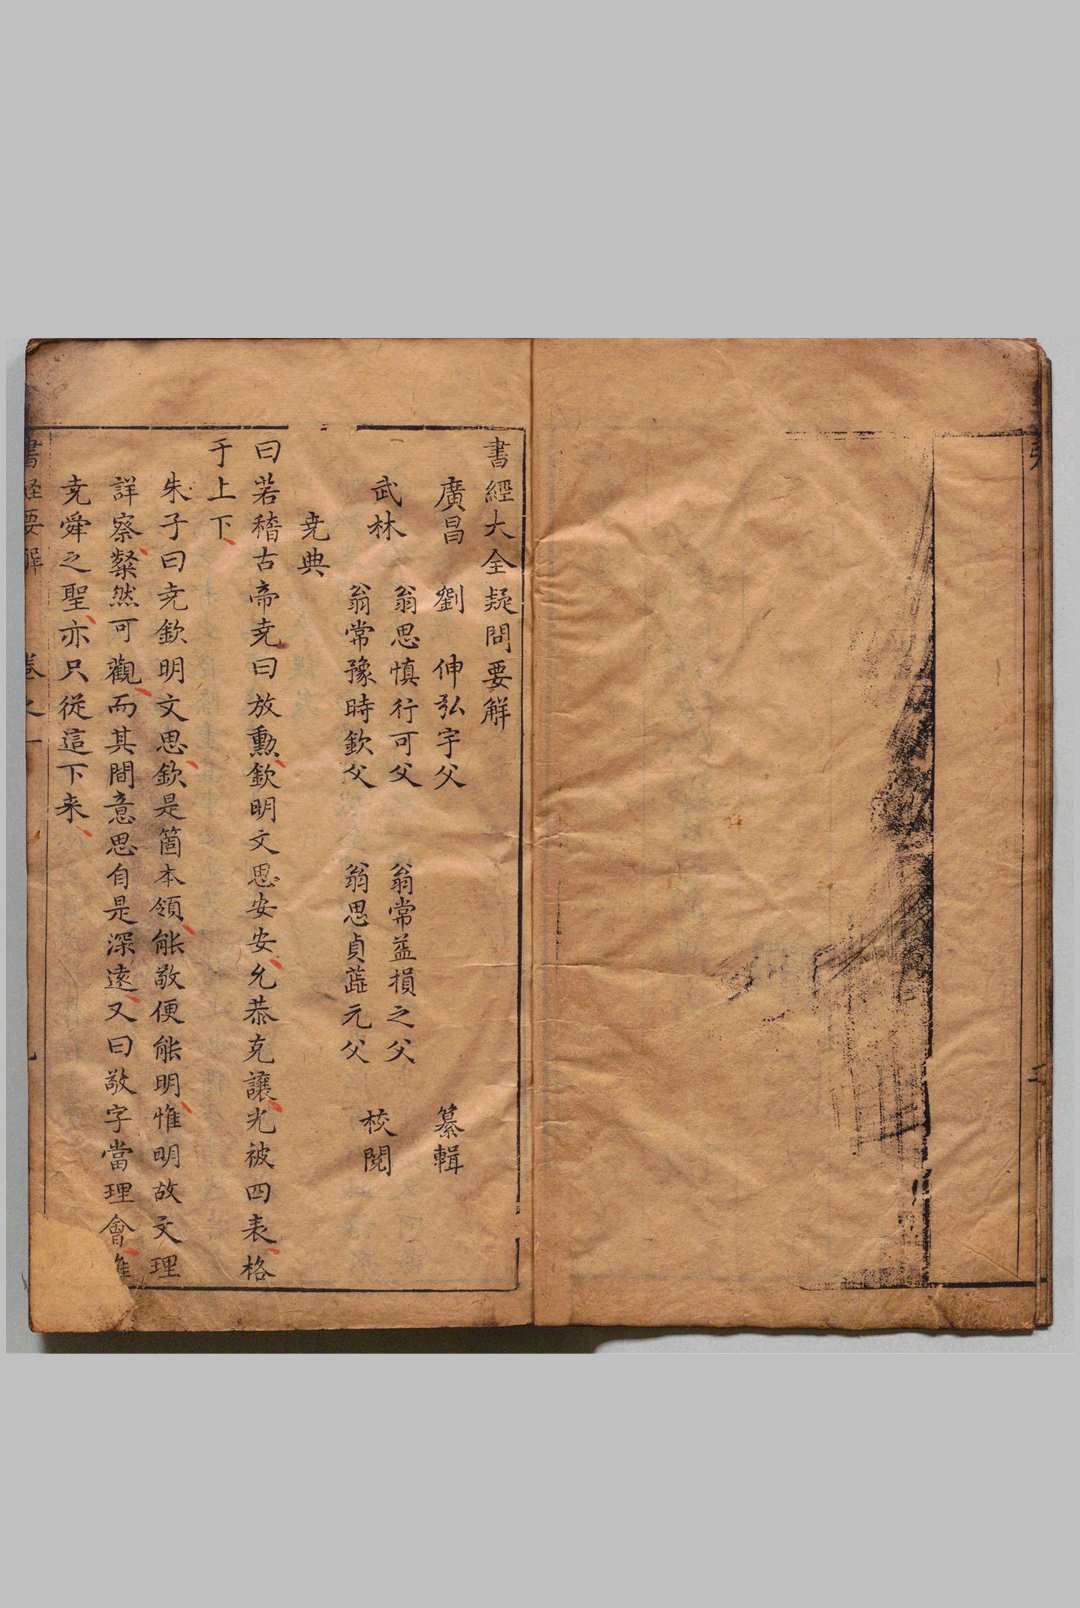 書經大全疑問要解
廣昌 劉 伸弘宇父 纂輯
武林 翁思慎行可父 翁常益損之父 校閱
翁常豫時欽父 翁思貞蓝元父
尭典
曰若稽古帝尭曰放勳欽明文思安安允恭克讓光被四表格
于上下
朱子曰尭欽明文思欽是箇本領能敬便能明惟明故文理
詳察粲然可觀而其間意思自是深遠又曰敬字當理會
尭舜之聖亦只從這下来
書經要解 卷之一